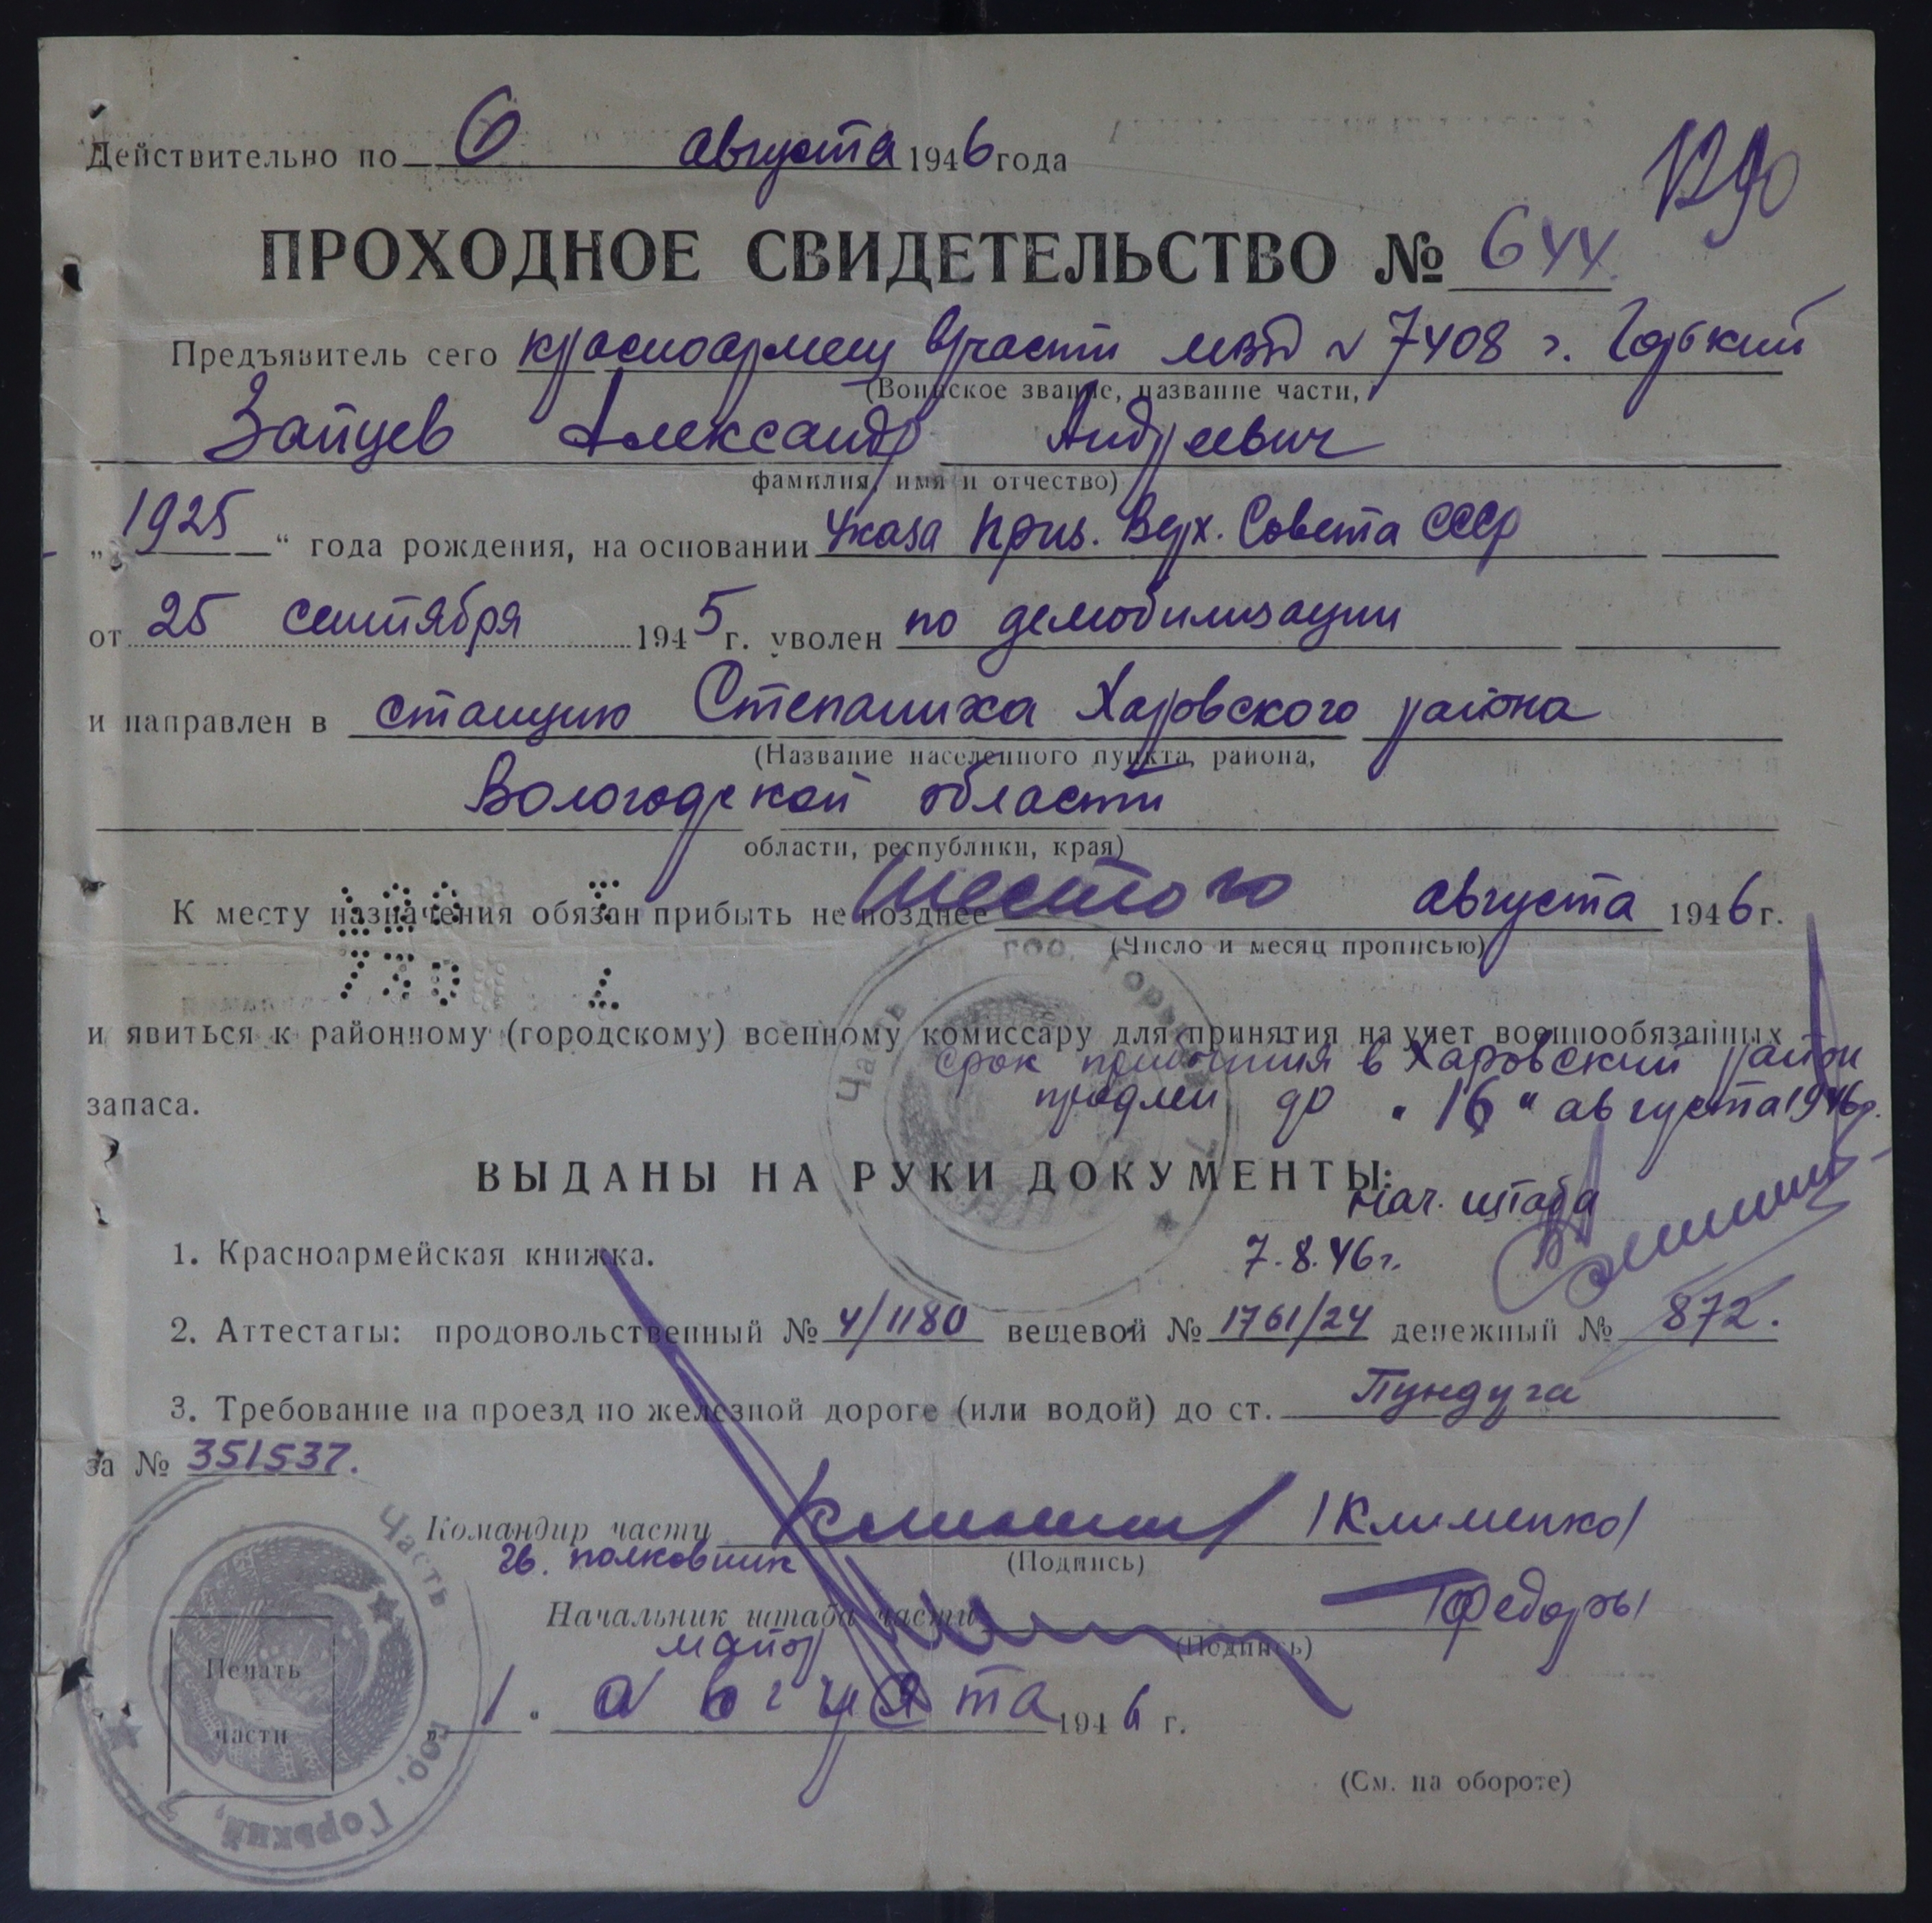 Действительно по 6 августа 1946 года
1290
ПРОХОДНОЕ СВИДЕТЕЛЬСТВО № 644
Предъявитель сего красноармеец в/части МВД № 7408 г. Горький
(Воинское звание, название части,
Зайцев Александр Андреевич
фамилия, имя и отчество)
„1925“ года рождения, на основании Указа През. Верх. Совета СССР
от 25 сентября 1945 г. уволен по демобилизации
и направлен в станцию Степаниха Харовского района
(Название населенного пункта, района,
Вологодской области
области, республики, края)
К месту назначения обязан прибыть не позднее шестого августа 1946 г.
(Число и месяц прописью)
и явиться к районному (городскому) военному комиссару для принятия на учет военнообязанных
запаса.
срок прибытия в Харовский район
продлен до „16“ августа 1946 г.
ВЫДАНЫ НА РУКИ ДОКУМЕНТЫ:
Нач. штаба
7.8.46 г.
1. Красноармейская книжка.
2. Аттестаты: продовольственный № 4/1180 вещевой № 1761/24 денежный № 872.
3. Требование на проезд по железной дороге (или водой) до ст. Пундуга
за № 351537.
Командир части /Клименко/
гв. полковник
(Подпись)
Начальник штаба части
майор
(Подпись)
Печать
части
„1“ августа 1946 г.
(См. на обороте)
Часть
гор. Горький,